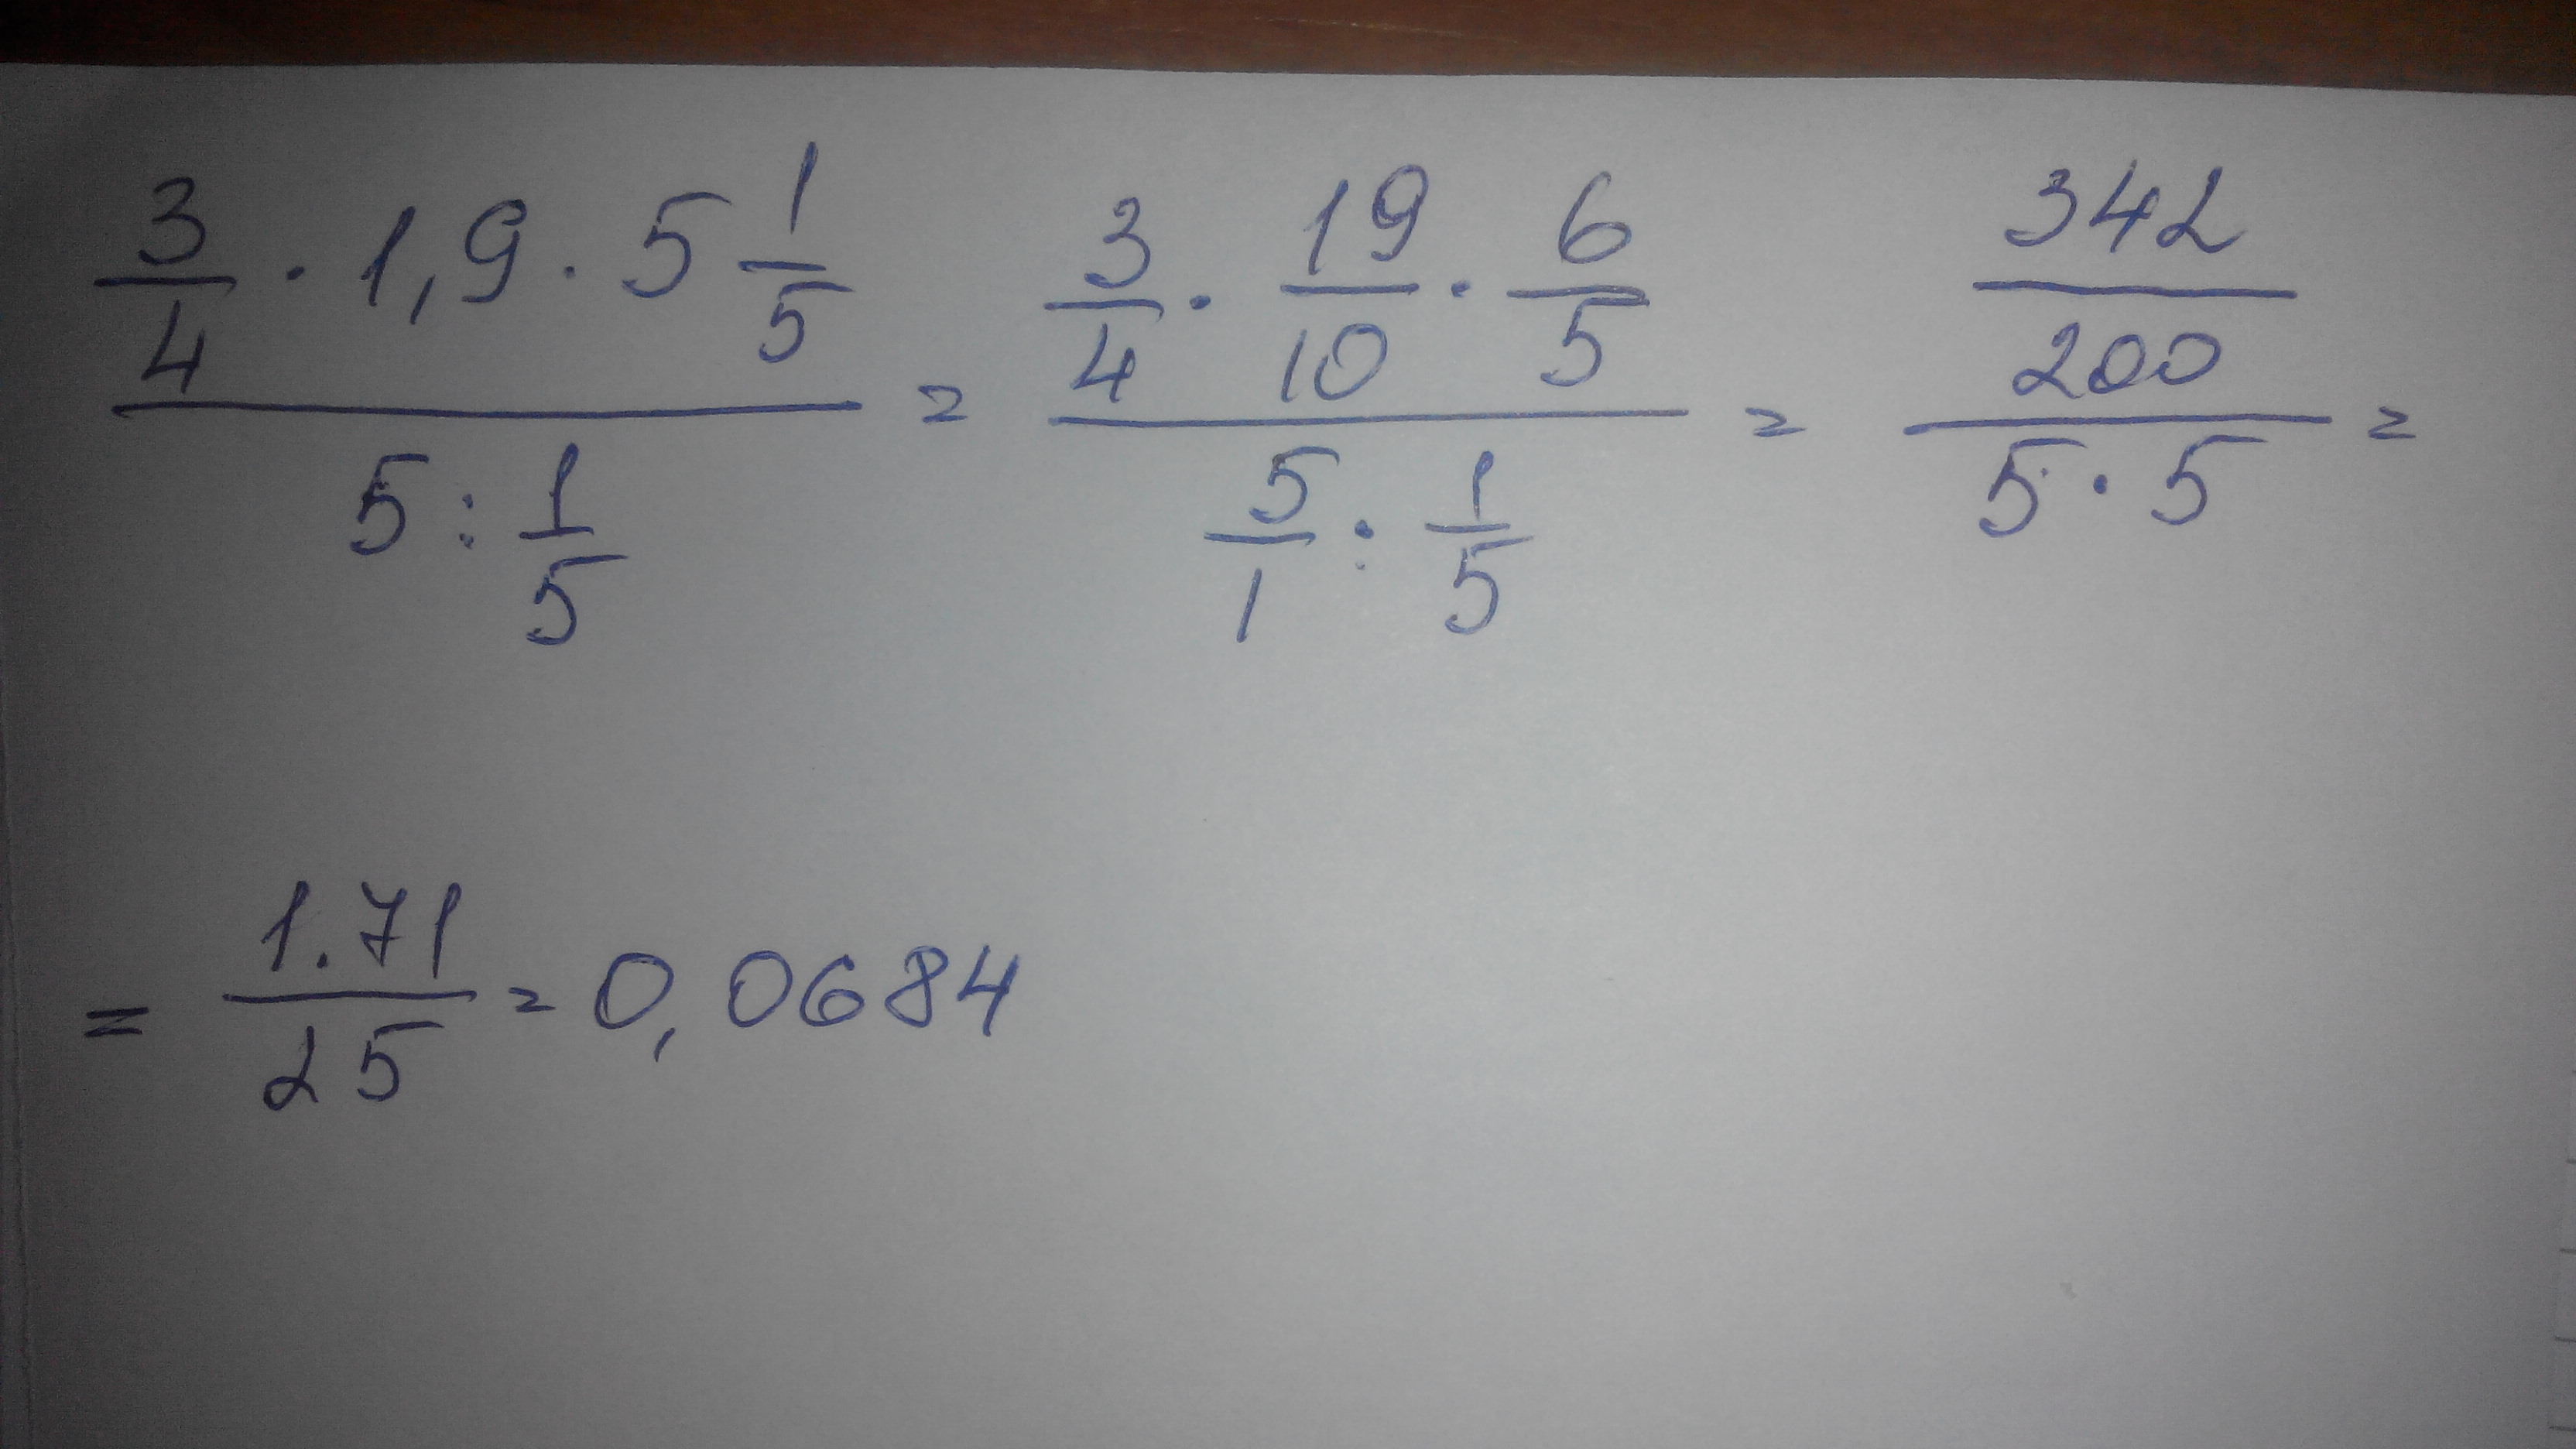 3/4 · 1,9 · 5 1/5 / 5 : 1/5 = 3/4 · 19/10 · 6/5 / 5/1 : 1/5 = 342/200 / 5 · 5 =
= 1.71/25 = 0,0684